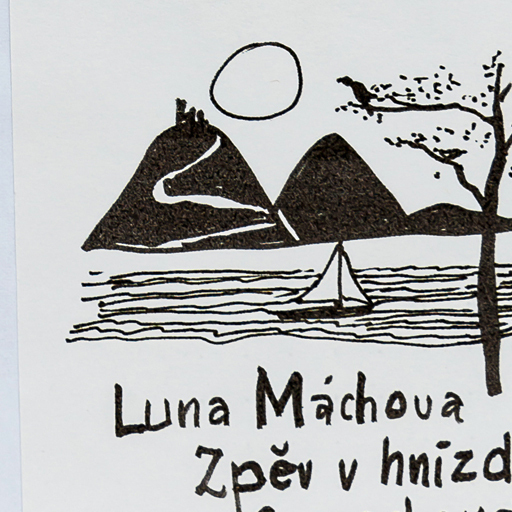 Luna Máchova
Zpěv v hnízd